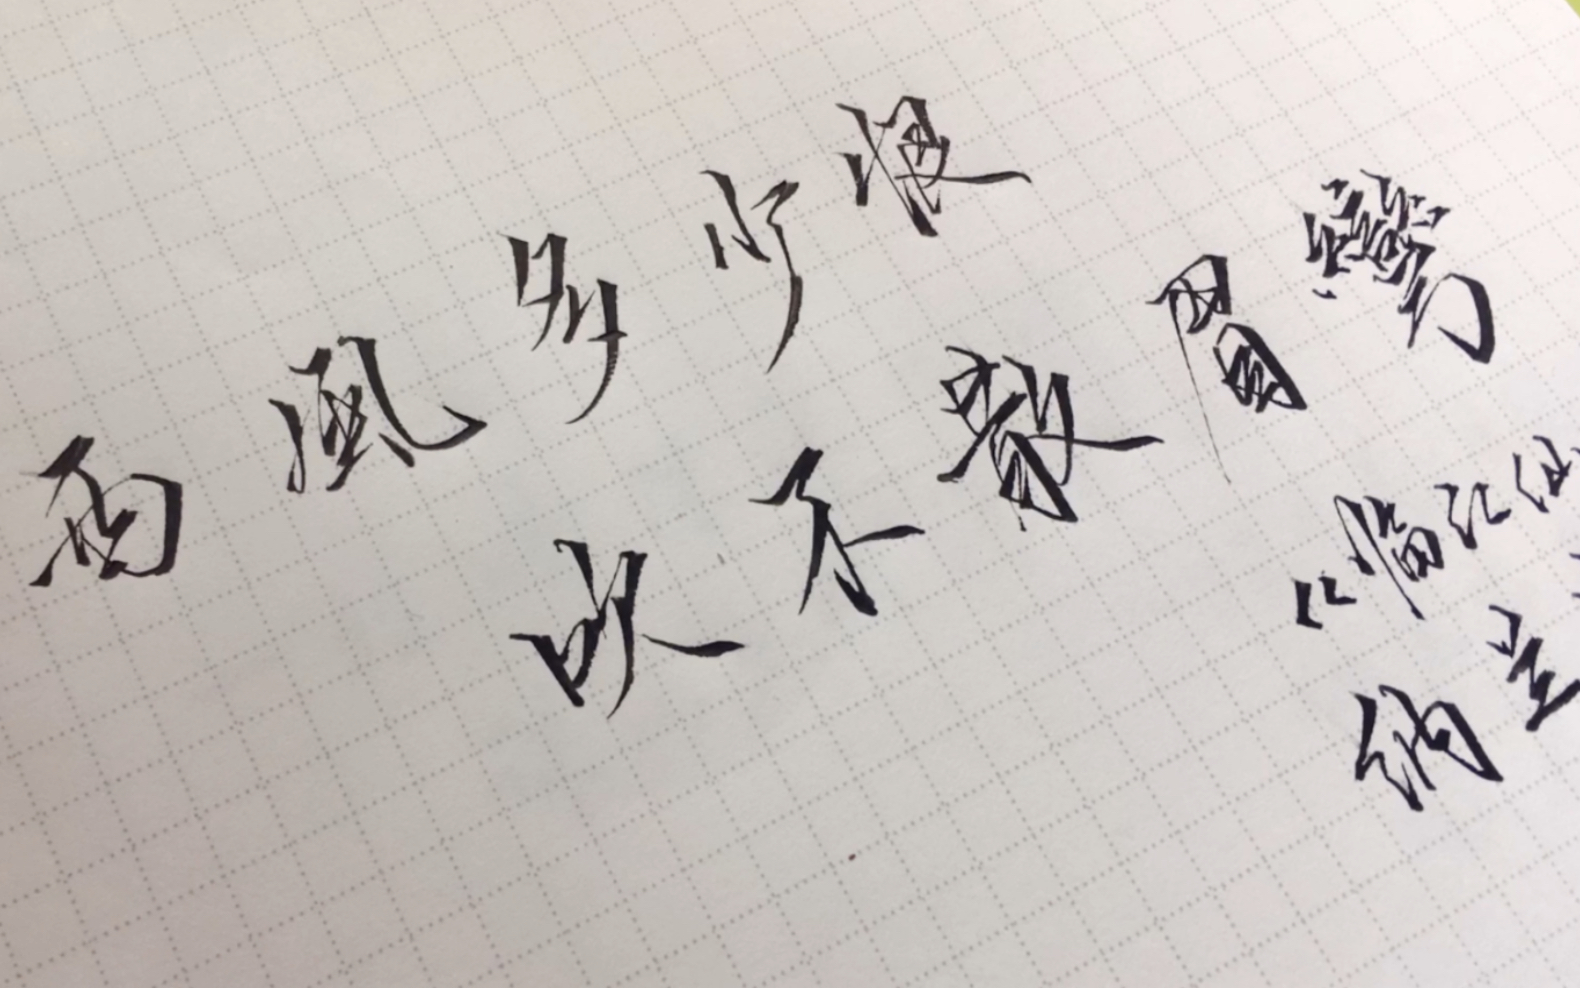 西風多少恨
吹不散眉彎
“临江仙
纳兰